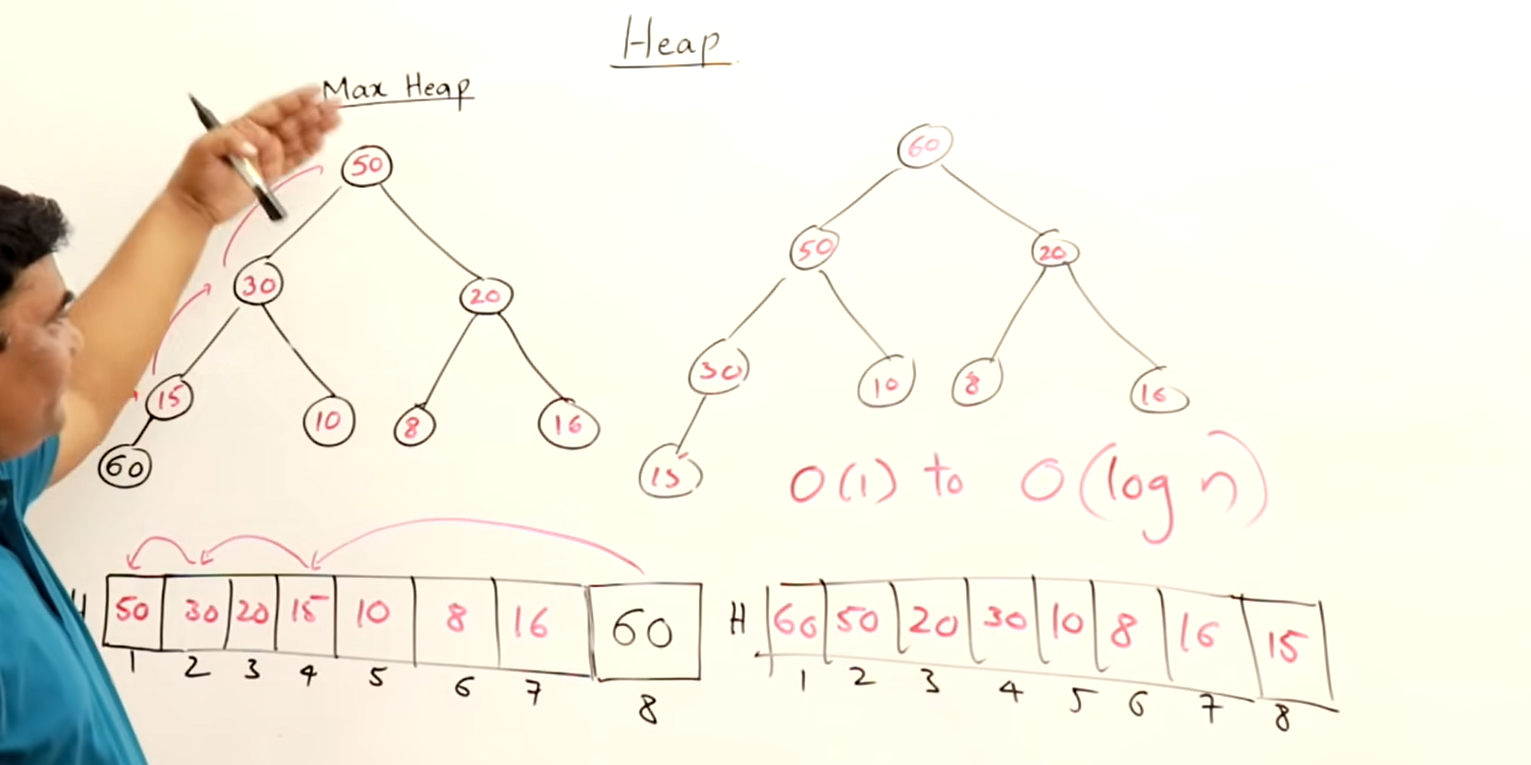 Heap
Max Heap
50
30 20
15 10 8 16
60
60
50 20
30 10 8 16
15
O(1) to O(log n)
50 30 20 15 10 8 16 60
1 2 3 4 5 6 7 8
H 60 50 20 30 10 8 16 15
1 2 3 4 5 6 7 8